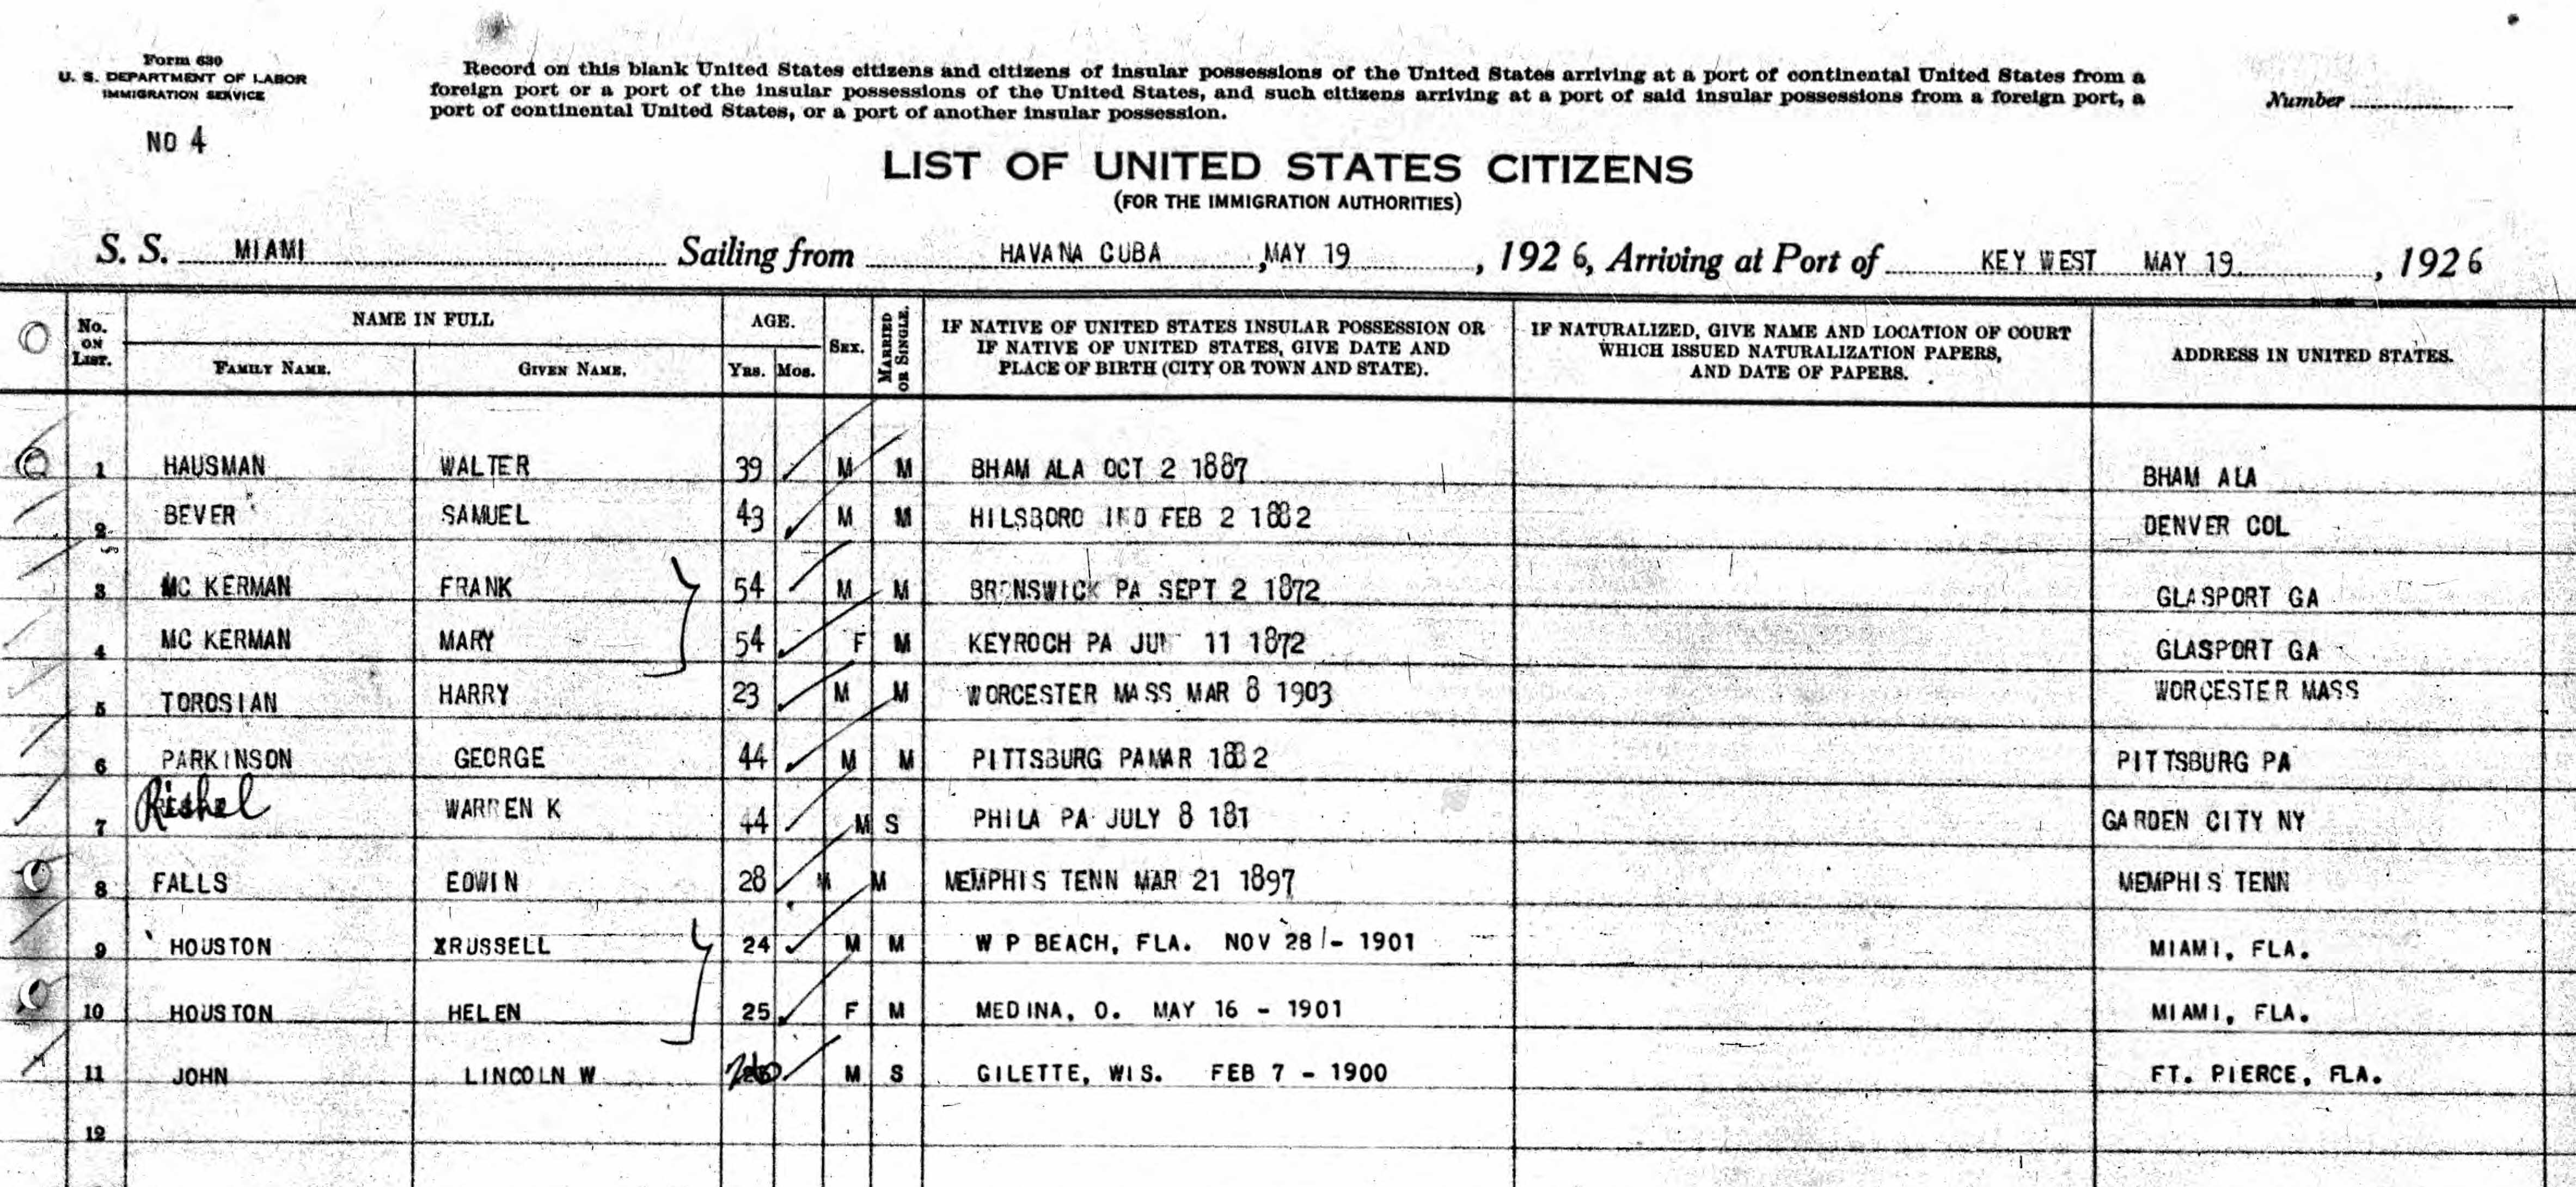 Form 630
U. S. DEPARTMENT OF LABOR
IMMIGRATION SERVICE
NO 4
Record on this blank United States citizens and citizens of insular possessions of the United States arriving at a port of continental United States from a
foreign port or a port of the insular possessions of the United States, and such citizens arriving at a port of said insular possessions from a foreign port, a
port of continental United States, or a port of another insular possession.
Number
LIST OF UNITED STATES CITIZENS
(FOR THE IMMIGRATION AUTHORITIES)
S. S. MIAMI Sailing from HAVANA CUBA ,MAY 19 , 1926, Arriving at Port of KEY WEST MAY 19 , 1926
No. ON LIST. NAME IN FULL AGE. SEX. MARRIED OR SINGLE. IF NATIVE OF UNITED STATES INSULAR POSSESSION OR IF NATIVE OF UNITED STATES, GIVE DATE AND PLACE OF BIRTH (CITY OR TOWN AND STATE). IF NATURALIZED, GIVE NAME AND LOCATION OF COURT WHICH ISSUED NATURALIZATION PAPERS, AND DATE OF PAPERS. ADDRESS IN UNITED STATES.
FAMILY NAME. GIVEN NAME. YRS. MOS.
1 HAUSMAN WALTER 39 M M BHAM ALA OCT 2 1887 BHAM ALA
2 BEVER SAMUEL 43 M M HILSBORO IND FEB 2 1882 DENVER COL
3 MC KERMAN FRANK 54 M M PA SEPT 2 1872 GLASPORT GA
4 MC KERMAN MARY 54 F M KEYROCH PA 11 1872 GLASPORT GA
5 TOROSIAN HARRY 23 M M WORCESTER MASS MAR 8 1903 WORCESTER MASS
6 PARKINSON GEORGE 44 M M PITTSBURG PAMAR 1882 PITTSBURG PA
7 Rishel WARREN K 44 M S PHILA PA JULY 8 181 GARDEN CITY NY
8 FALLS EDWIN 28 M M MEMPHIS TENN MAR 21 1897 MEMPHIS TENN
9 HOUSTON XRUSSELL 24 M M W P BEACH, FLA. NOV 28 - 1901 MIAMI, FLA.
10 HOUSTON HELEN 25 F M MEDINA, O. MAY 16 - 1901 MIAMI, FLA.
11 JOHN LINCOLN W M S GILETTE, WIS. FEB 7 - 1900 FT. PIERCE, FLA.
12